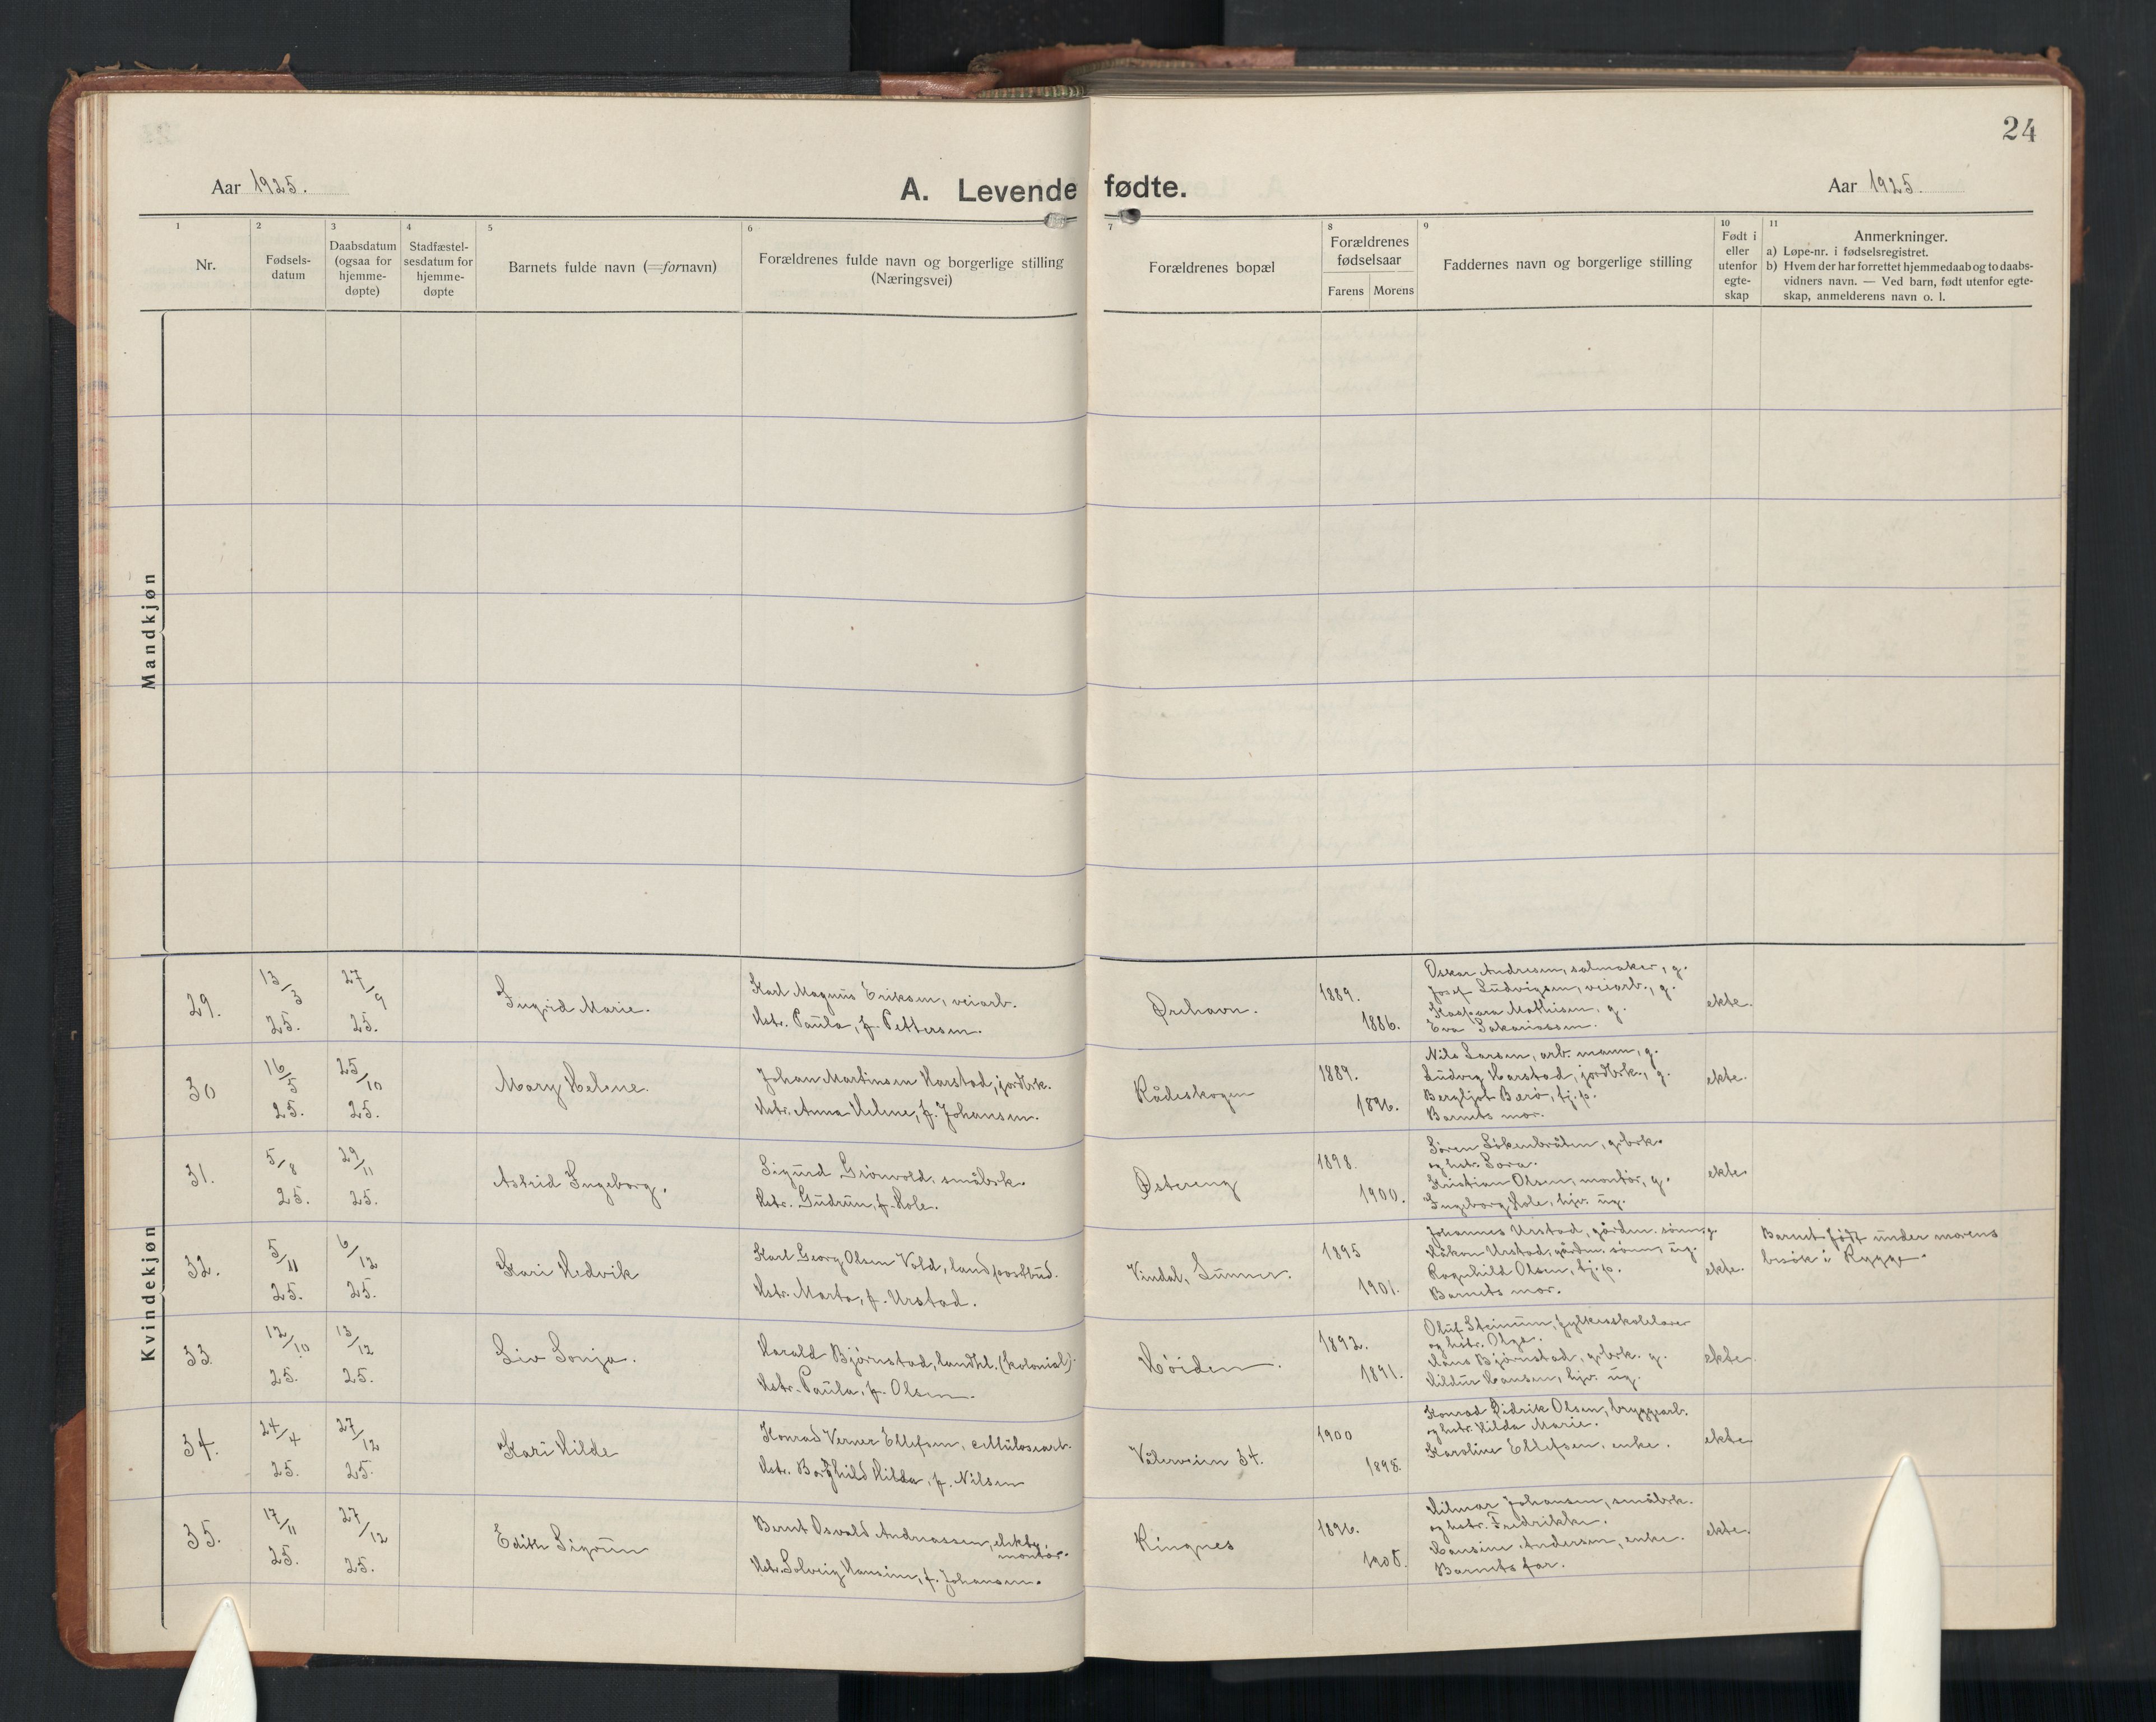 24
Aar 1925.
A. Levende fødte.
Aar 1925.
1 2 3 4 5 6 7 8 9 10 11
Nr.
Fødsels-
datum
Daabsdatum
(ogsaa for
hjemme-
døpte)
Stadfæstel-
sesdatum for
hjemme-
døpte
Barnets fulde navn (=fornavn)
Forældrenes fulde navn og borgerlige stilling
(Næringsvei)
Forældrenes bopæl
Forældrenes
fødselsaar
Farens Morens
Faddernes navn og borgerlige stilling
Født i
eller
utenfor
egte-
skap
Anmerkninger.
a) Løpe-nr. i fødselsregistret.
b) Hvem der har forrettet hjemmedaab og to daabs-
vidners navn. — Ved barn, født utenfor egte-
skap, anmelderens navn o. l.
Mandkjøn
Kvindekjøn
29.
13/3
25.
27/9
25.
Ingrid Marie.
Karl Magnus Eriksen, veiarb.
Hstr. Paula, f. Pettersen.
Ørehavn.
1889.
1886.
Oskar Andresen, salmaker, g.
Josef Ludvigsen, veiarb., g.
Kaspara Mathisen, g.
Eva Sakariassen.
ekte.
30
16/5
25.
25/10
25.
Mary Helene.
Johan Martinsen Harstad, jordbrk.
Hstr. Anna Helene, f. Johansen.
Rådeskogen
1889.
1896.
Nils Larsen, arb. mann, g.
Ludvig Harstad, jordbrk., g.
Bergljot Berø, tj.p.
Barnets mor.
ekte.
31.
5/8
25.
29/11
25.
Astrid Ingeborg.
Sigurd Grönvold, småbrk.
Hstr. Gudrun, f. Hole.
Østereng
1898.
1900.
Sören Lökenbråten, gbrk.
og hstr. Lova.
Kristian Olsen, montör, g.
Ingeborg Hole, hjv. ug.
ekte.
32.
5/11
25.
6/12
25.
Kari Hedvik
Karl Georg Olsen Vold, landpostbud.
Hstr. Marta, f. Urstad.
Vindal, Lunner.
1895
1901.
Johannes Urstad, gårdm. sönn, g.
Håkon Urstad, gårdm. sönn, ug.
Ragnhild Olsen, tj.p.
Barnets mor.
ekte.
Barnet født under morens
besök i Rygge.
33.
12/10
25.
13/12
25.
Liv Sonja.
Harald Bjørnstad, landhl. (kolonial).
Hstr. Paula, f. Olsen.
Höiden.
1892.
1891.
Oluf Steinum, fylkesskolelærer
og hstr. Olga.
Hans Bjørnstad, gbrk. g.
Hildur Hansen, hjv. ug.
ekte.
34.
24/4
25.
27/12
25.
Kari Hilde
Konrad Verner Ellefsen, cellulosearb.
Hstr. Borghild Hilda, f. Nilsen
Vålerveien 34.
1900
1898.
Konrad Didrik Olsen, bryggearb.
og hstr. Hilda Marie.
Karoline Ellefsen, enke.
ekte
35.
17/11
25.
27/12
25.
Edith Sigrun
Bernt Osvald Andreassen, elektr.
montör.
Hstr. Solveig Hansine, f. Johansen.
Ringnes
1896.
1905.
Hilmar Johansen, småbrk.
og hstr. Fredrikke.
Hansine Andersen, enke.
Barnets far.
ekte.